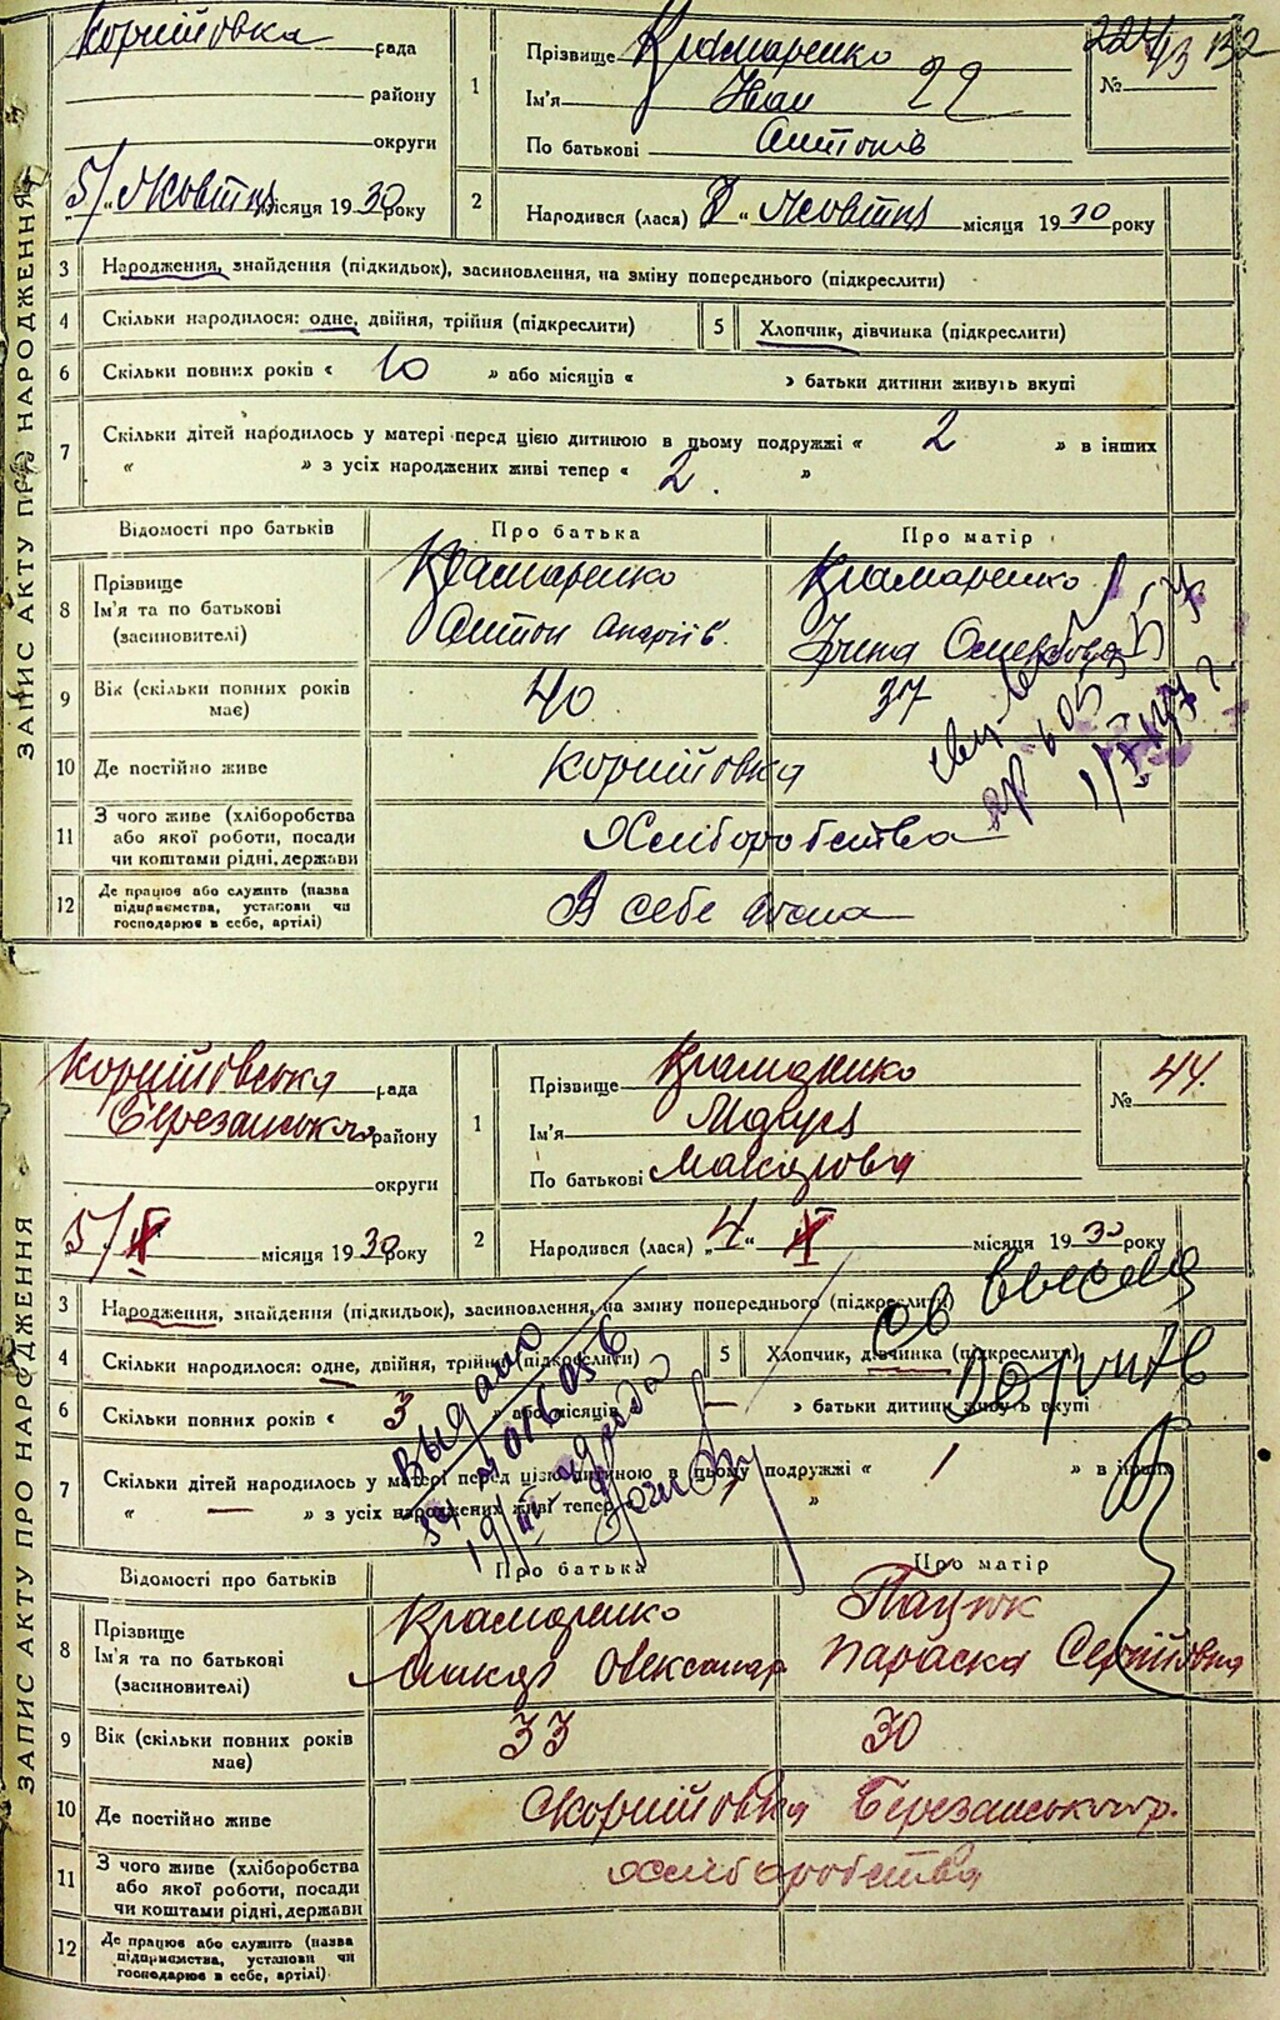 ЗАПИС АКТУ ПРО НАРОДЖЕННЯ
Корнійовка рада
району
округи
5/ "Жовтня місяця 1930 року
1
Прізвище Крамаренко
Ім'я Іван 22
По батькові Антонів
№
132
2
Народився (лася) 3 " Жовтня місяця 1930 року
3 Народження, знайдення (підкидьок), засиновлення, на зміну попереднього (підкреслити)
4 Скільки народилося: одне, двійня, трійня (підкреслити)
5 Хлопчик, дівчинка (підкреслити)
6 Скільки повних років « 10 » або місяців « » батьки дитини живуть вкупі
7 Скільки дітей народилось у матері перед цією дитиною в цьому подружжі « 2 » в інших
« » з усіх народжених живі тепер « 2. »
Відомості про батьків Про батька Про матір
8 Прізвище Крамаренко Крамаренко
Ім'я та по батькові Антон Андріїв.
(засиновителі)
9 Вік (скільки повних років має) 40 37
10 Де постійно живе Корнійовка
11 З чого живе (хліборобства або якої роботи, посади чи коштами рідні, держави Хліборобства
12 Де працює або служить (назва підприємства, установи чи господарює в себе, артілі) В себе дома
ЗАПИС АКТУ ПРО НАРОДЖЕННЯ
Корнійовська рада
району
округи
5/ X місяця 1930 року
1
Прізвище Крамаренко
Ім'я Маруся
По батькові
№ 44.
2
Народився (лася) „4" X місяця 1930 року
3 Народження, знайдення (підкидьок), засиновлення, на зміну попереднього (підкреслити)
4 Скільки народилося: одне, двійня, трійня (підкреслити)
5 Хлопчик, дівчинка (підкреслити)
6 Скільки повних років « 3 » або місяців « — » батьки дитини живуть вкупі
7 Скільки дітей народилось у матері перед цією дитиною в цьому подружжі « 1 » в інших
« — » з усіх народжених живі тепер « 1 »
Выдано
Відомості про батьків Про батька Про матір
8 Прізвище Крамаренко Пацюк
Ім'я та по батькові Олександр Параска Сергійовна
(засиновителі)
9 Вік (скільки повних років має) 33 30
10 Де постійно живе Скорнійовка Березанського р.
11 З чого живе (хліборобства або якої роботи, посади чи коштами рідні, держави Хліборобства
12 Де працює або служить (назва підприємства, установи чи господарює в себе, артілі)